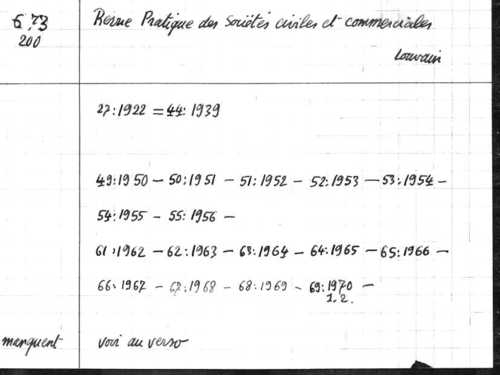 6.73 Revue Pratique des Sociétés civiles et commerciales
200
Louvain
27:1922 = 44:1939
49:1950 - 50:1951 - 51:1952 - 52:1953 - 53:1954 -
54:1955 - 55:1956 -
61:1962 - 62:1963 - 63:1964 - 64:1965 - 65:1966 -
66:1967 - 67:1968 - 68:1969 - 69:1970 -
1.2.
manquent voir au verso